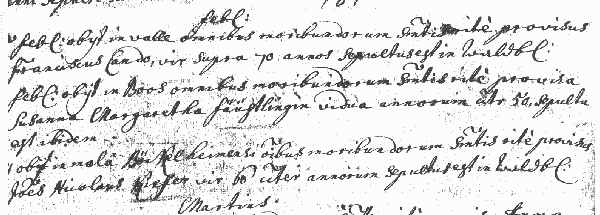 Feb[:]
Feb: obijt in valle omnibus moribundorum Sentis ritè provisus
Franciscus Lando, vir supra 70 annos Sepultus est in Waldb:
Feb: obijt in Boos omnibus moribundorum Sentis ritè provisa
Susanna Margaretha vidua annorum 50, sepulta
est ibidem
obijt in mola oibus moribundorum Sentis ritè provisus
Joes Nicolaus vir 60 citer annorum sepultus est in Waldb:
Martius